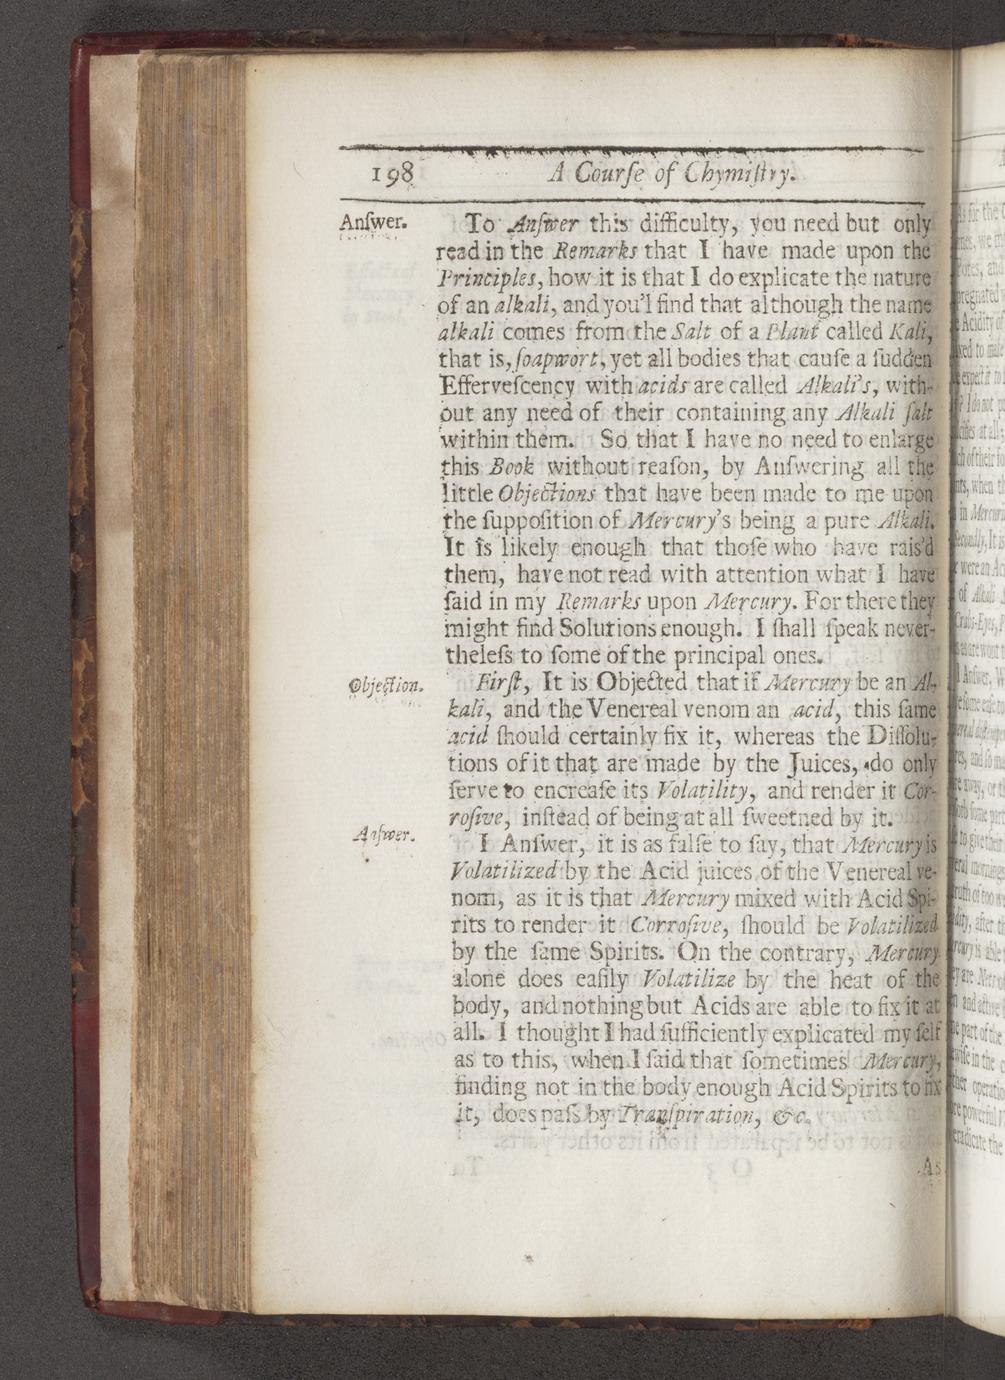 198 A Courſe of Chymiſtry.
Anſwer. To Anſwer this difficulty, you need but only
read in the Remarks that I have made upon the
Principles, how it is that I do explicate the nature
of an alkali, and you'l find that although the name
alkali comes from the Salt of a Plant called Kali,
that is, ſoapwort, yet all bodies that cauſe a ſudden
Efferveſcency with acids are called Alkali's, with-
out any need of their containing any Alkali ſalt
within them. So that I have no need to enlarge
this Book without reaſon, by Anſwering all the
little Objections that have been made to me upon
the ſuppoſition of Mercury's being a pure Alkali.
It is likely enough that thoſe who have rais'd
them, have not read with attention what I have
ſaid in my Remarks upon Mercury. For there they
might find Solutions enough. I ſhall ſpeak never-
theleſs to ſome of the principal ones.
Objection. Firſt, It is Objected that if Mercury be an Al-
kali, and the Venereal venom an acid, this ſame
acid ſhould certainly fix it, whereas the Diſſolu-
tions of it that are made by the Juices, do only
ſerve to encreaſe its Volatility, and render it Cor-
roſive, inſtead of being at all ſweetned by it.
Anſwer. I Anſwer, it is as falſe to ſay, that Mercury is
Volatilized by the Acid juices of the Venereal ve-
nom, as it is that Mercury mixed with Acid Spi-
rits to render it Corroſive, ſhould be Volatilized
by the ſame Spirits. On the contrary, Mercury
alone does eaſily Volatilize by the heat of the
body, and nothing but Acids are able to fix it at
all. I thought I had ſufficiently explicated my ſelf
as to this, when I ſaid that ſometimes Mercury,
finding not in the body enough Acid Spirits to fix
it, does paſs by Tranſpiration, &c.
As